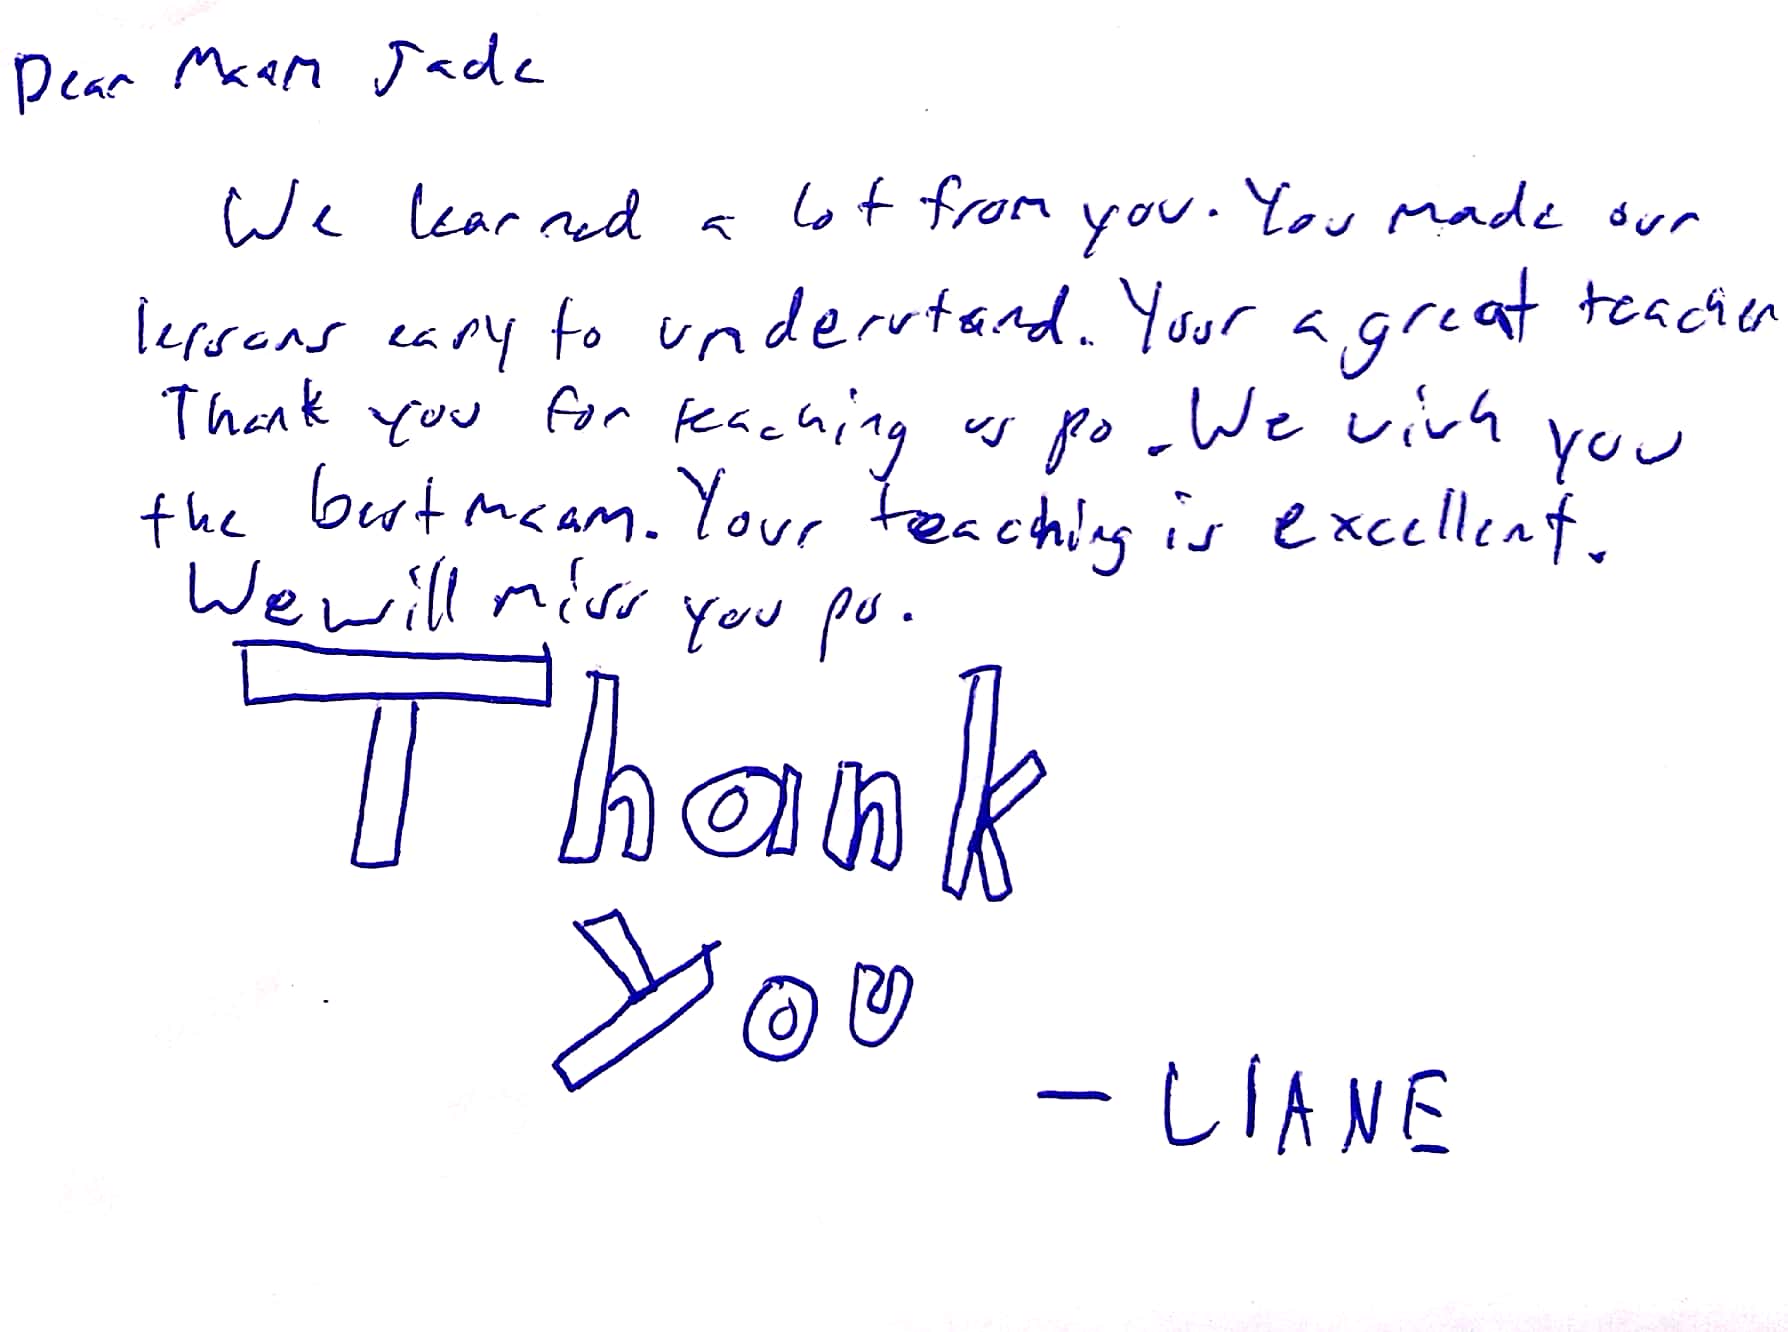 Dear Maam Jade
We learned a lot from you. You made our
lessons easy to understand. Your a great teacher
Thank you for teaching us po. We wish you
the best maam. Your teaching is excellent.
We will miss you po.
Thank
You
- LIANE